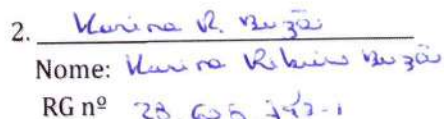 2. Karina R. Buzão
Nome: Karina Ribeiro Buzão
RG nº